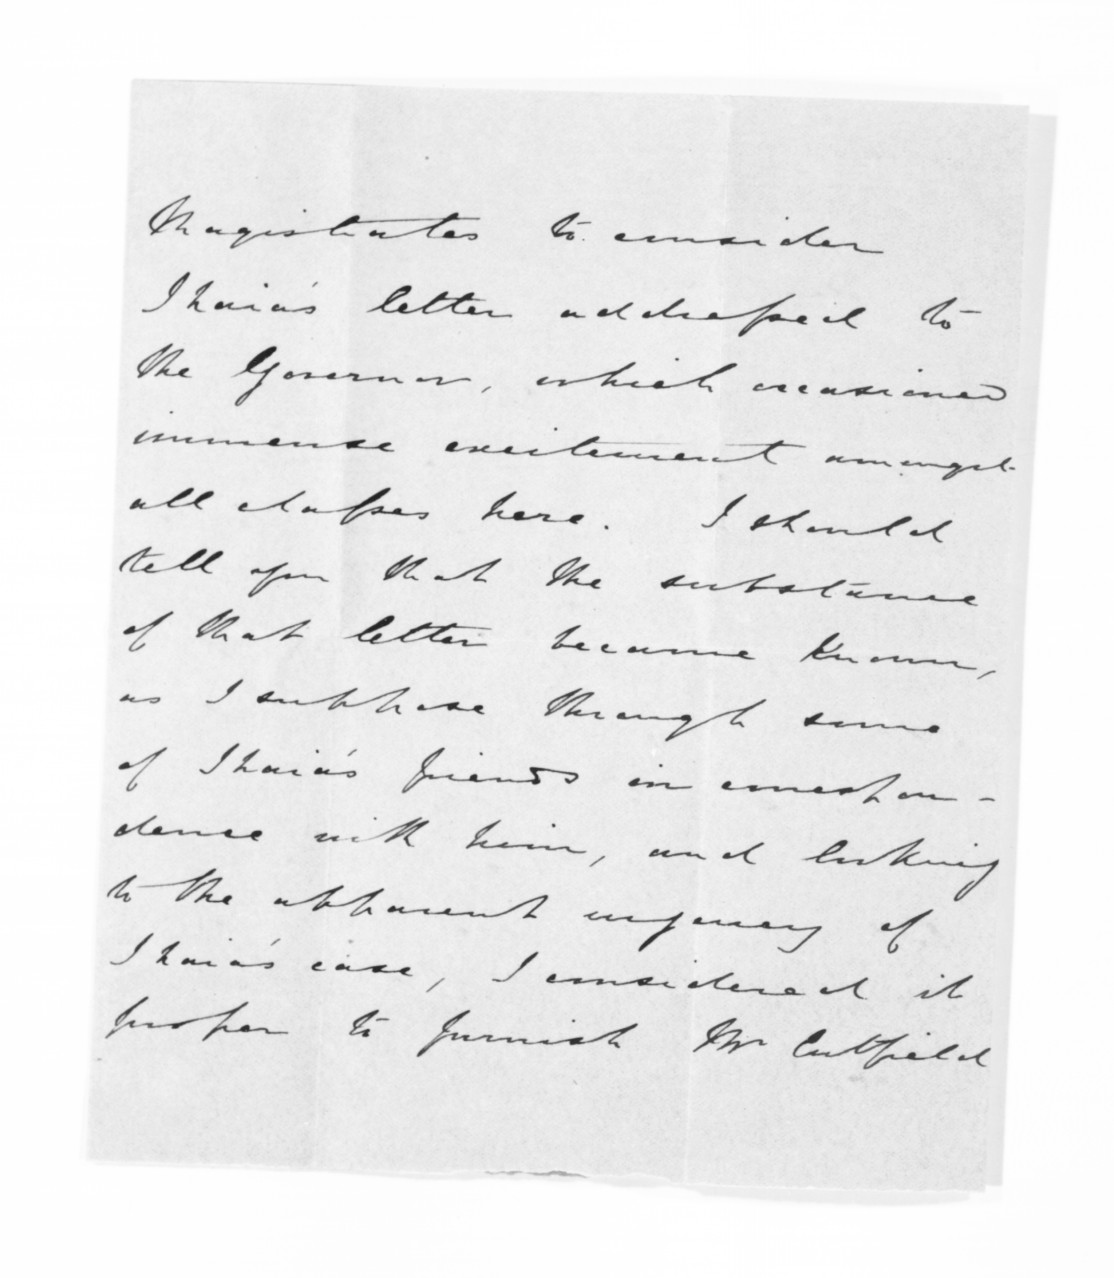 Magistrates to consider
Ihaia's letter addressed to
the Governor, which occasioned
immense excitement amongst
all classes here. I should
tell you that the substance
of that letter became known,
as I suppose through some
of Ihaia's friends in correspon-
dence with him, and looking
to the apparent urgency of
Ihaia's case, I considered it
proper to furnish Mr Cutfield